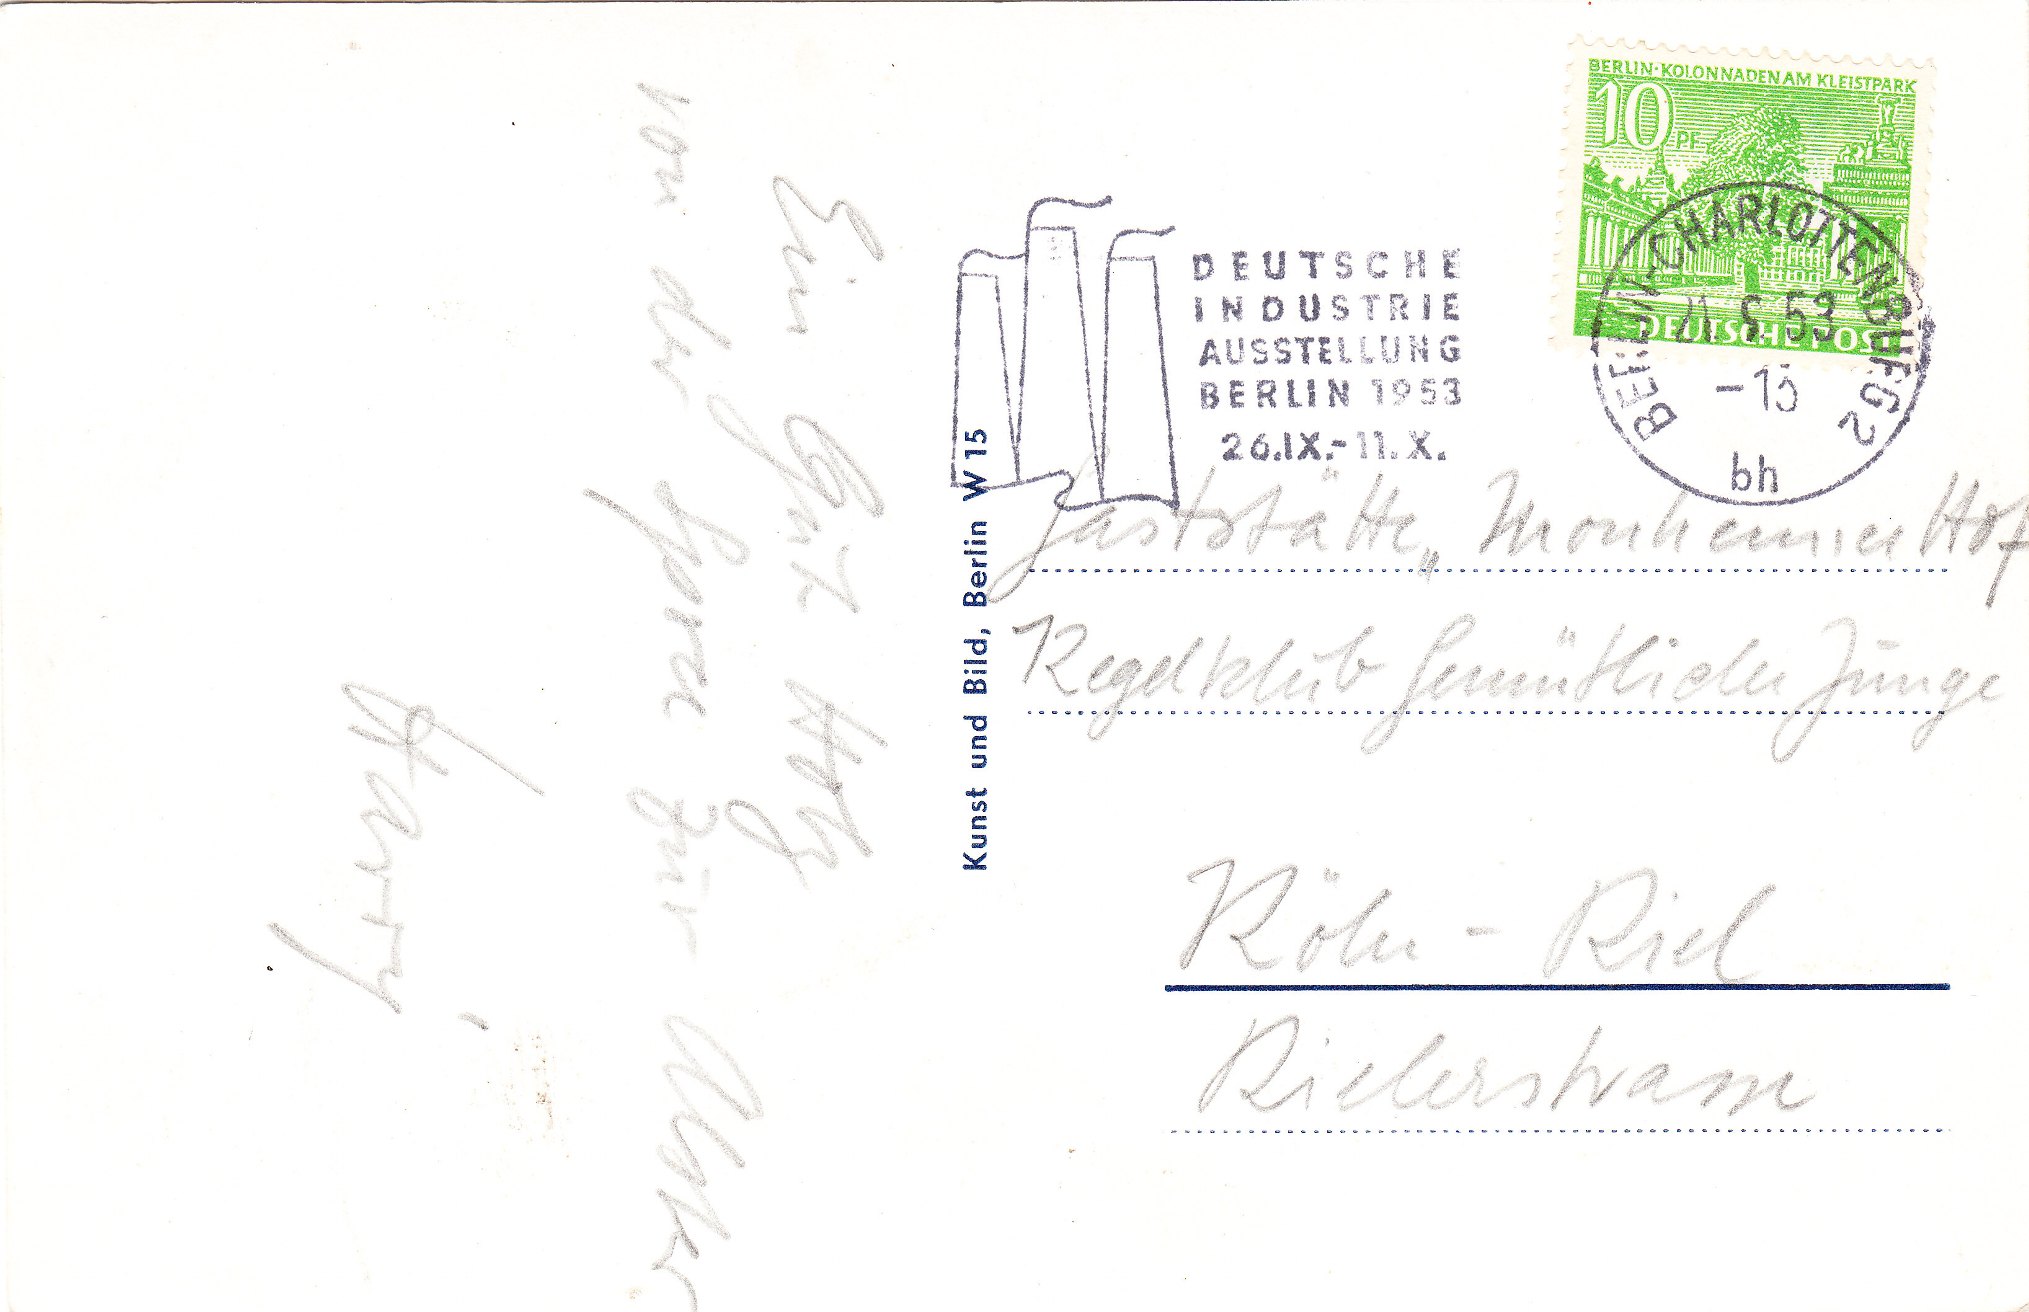 BERLIN·KOLONNADEN AM KLEISTPARK
10 PF
DEUTSCHE POST
BERLIN-CHARLOTTENBURG 2
53
bh
DEUTSCHE
INDUSTRIE
AUSSTELLUNG
BERLIN 1953
26.IX.-11.X.
Kunst und Bild, Berlin W 15
Ein Gut Holz
von der Spree zur
Harry
Gaststätte „Monheimer Hof
Kegelklub Gemütliche Junge
Köln - Riel
Rielerstrasse